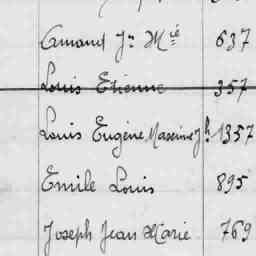 Amand Jn Mie 637
Louis Etienne 357
Louis Eugène Maxime Jh 1357
Emile Louis 895
Joseph Jean Marie 769